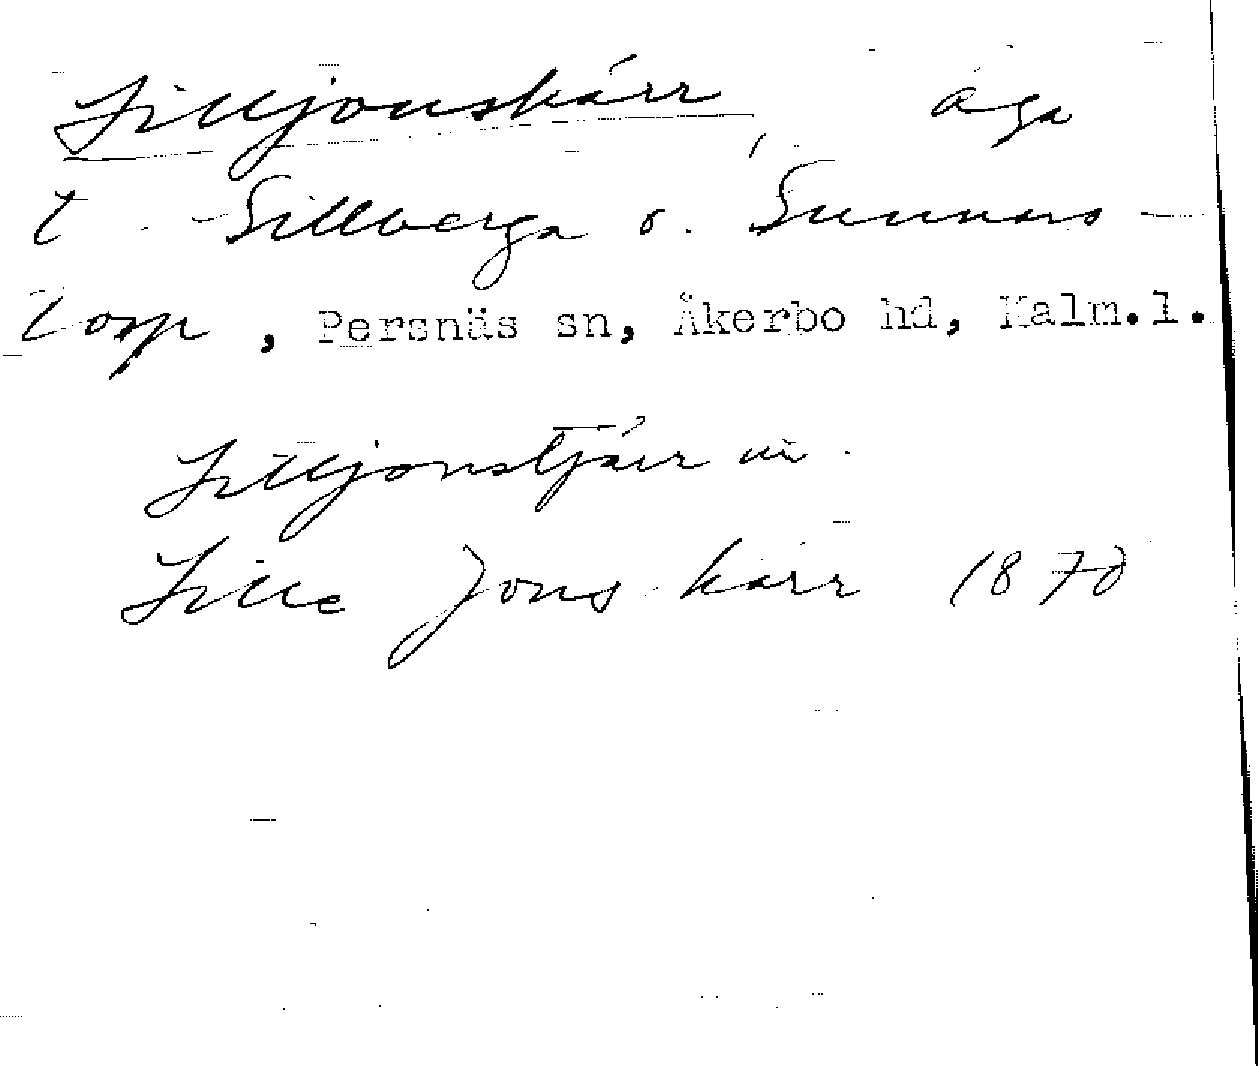 Lilljonskärr, äga
t. Sillberga o. Sunnars-
torp, Persnäs sn, Åkerbo hd, Kalm.l.
Lilljonstjärr
Lille Jons kärr 1870